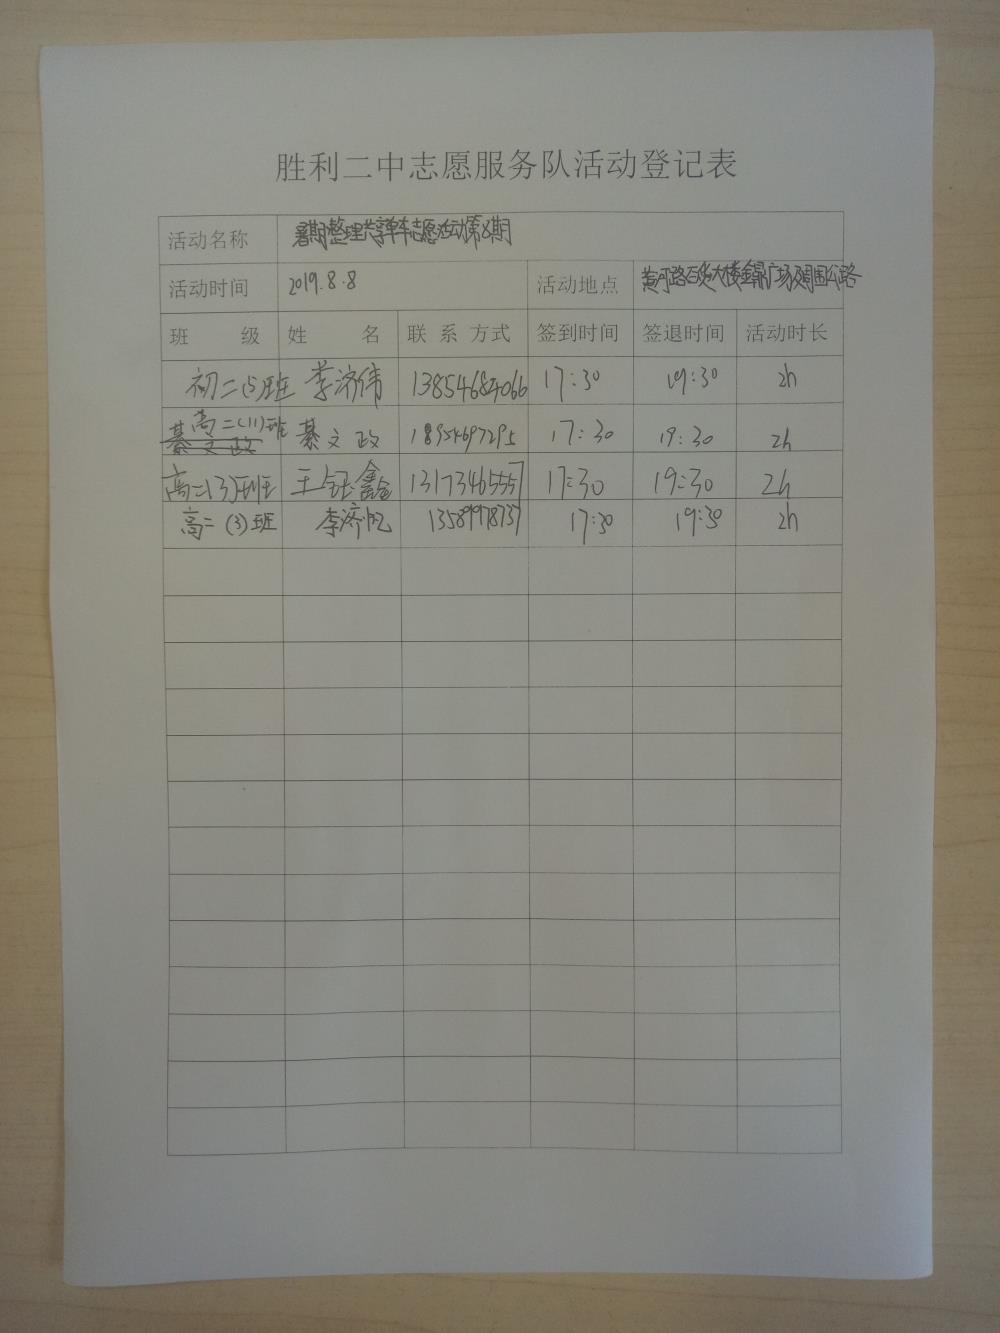 胜利二中志愿服务队活动登记表
活动名称 暑期整理共享单车志愿活动第8期
活动时间 2019.8.8 活动地点 黄河路百货大楼金鼎广场及周围公路
班 级 姓 名 联 系 方式 签到时间 签退时间 活动时长
初二(5)班 李济伟 13854684066 17:30 19:30 2h
高二(11)班 綦文政 18954697295 17:30 19:30 2h
綦文政
高二(3)班 王钰鑫 13173465557 17:30 19:30 2h
高二(3)班 李济 13589978737 17:30 19:30 2h